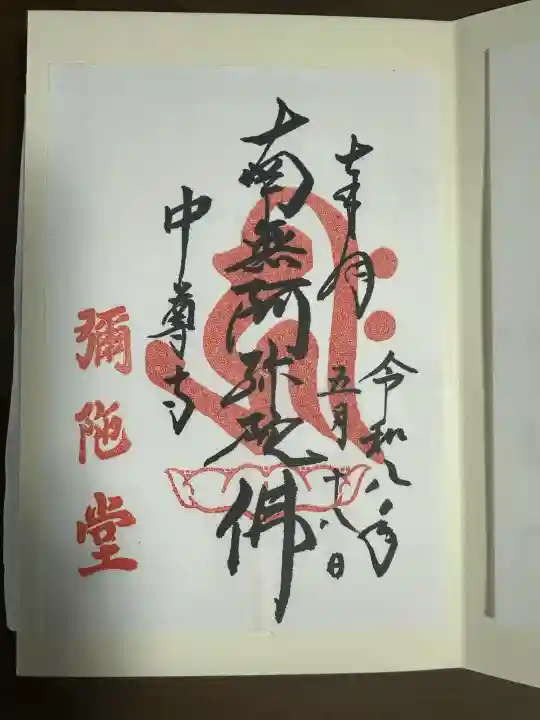 奉拝
令和八年
五月十八日
南無阿弥陀佛
中尊寺
彌陁堂